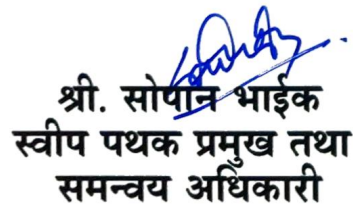 श्री. सोपान भाईक
स्वीप पथक प्रमुख तथा
समन्वय अधिकारी